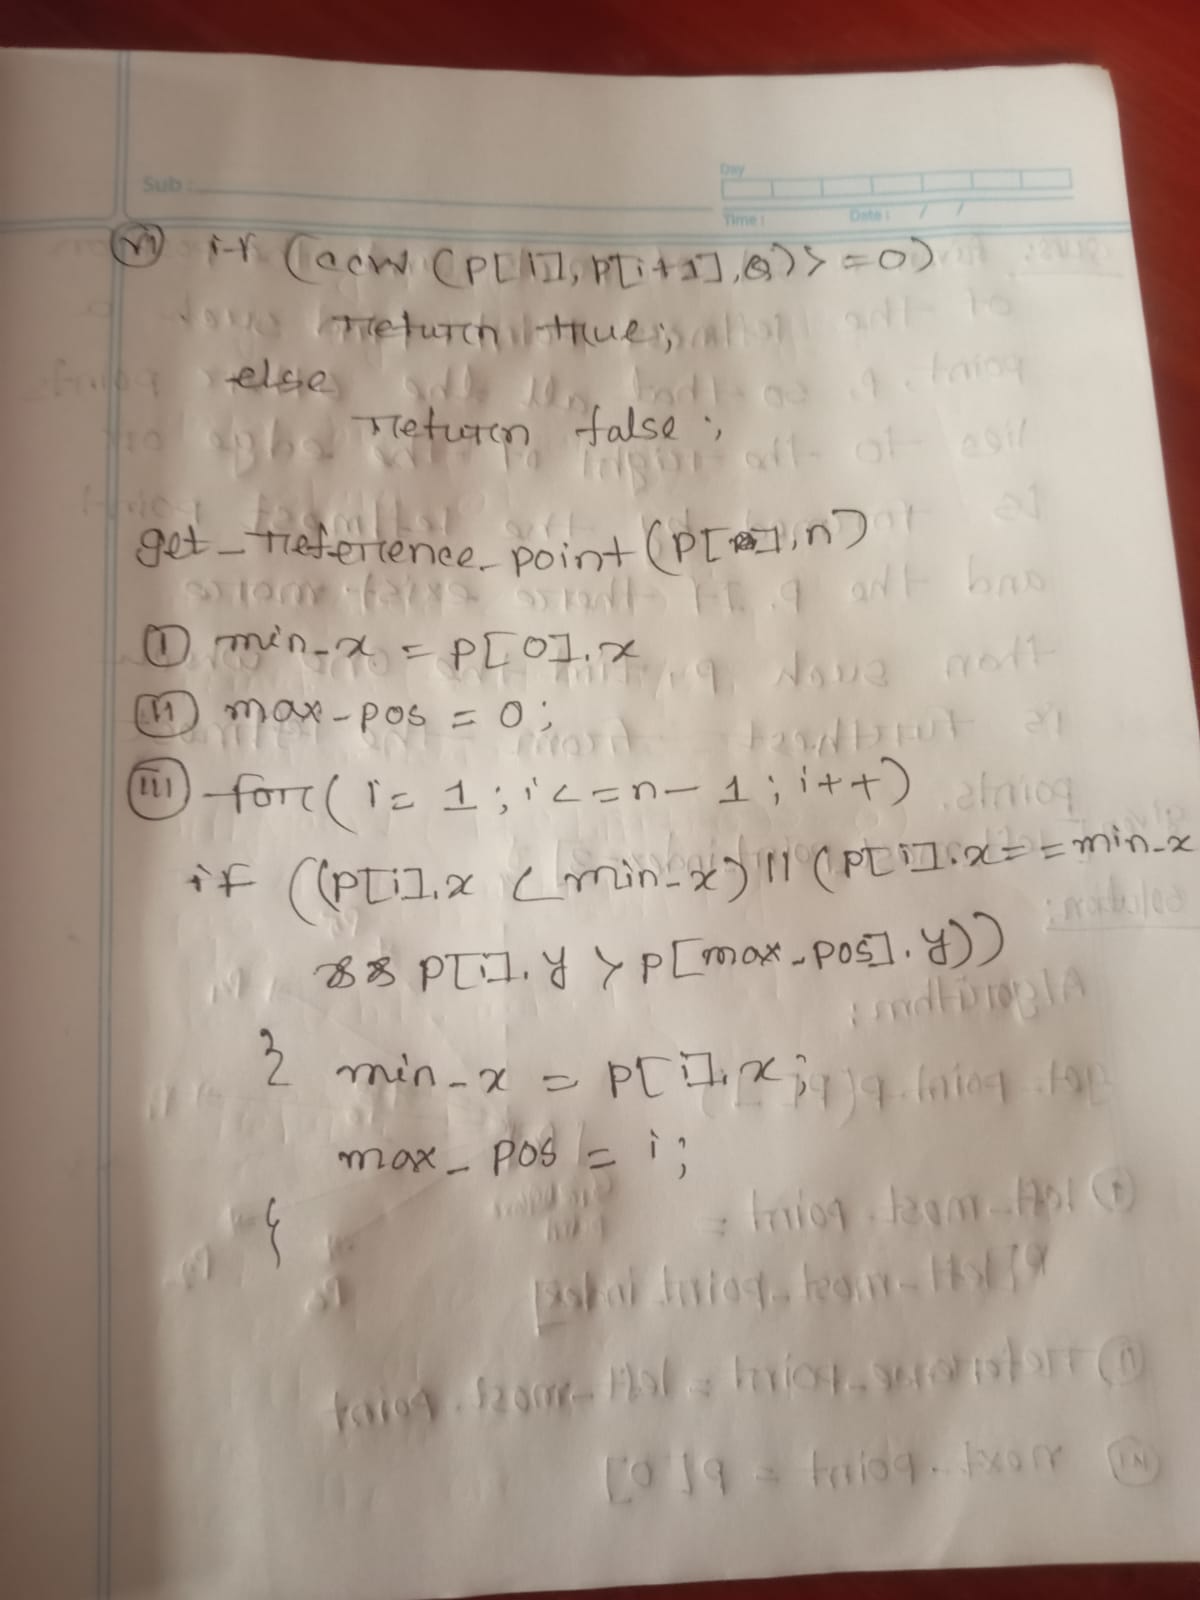 Sub :
Day
Time :
Date : / /
VII if (accw (P[i], P[i+1], Q)) >= 0)
return true;
else
return false;
get_reference_point (P[], n)
I min_x = P[0].x
II max_pos = 0;
III for ( i = 1 ; i <= n - 1 ; i++)
if ((P[i].x < min_x) || (P[i].x == min_x
&& P[i].y > P[max_pos].y))
} min_x = P[i].x;
max_pos = i;
{